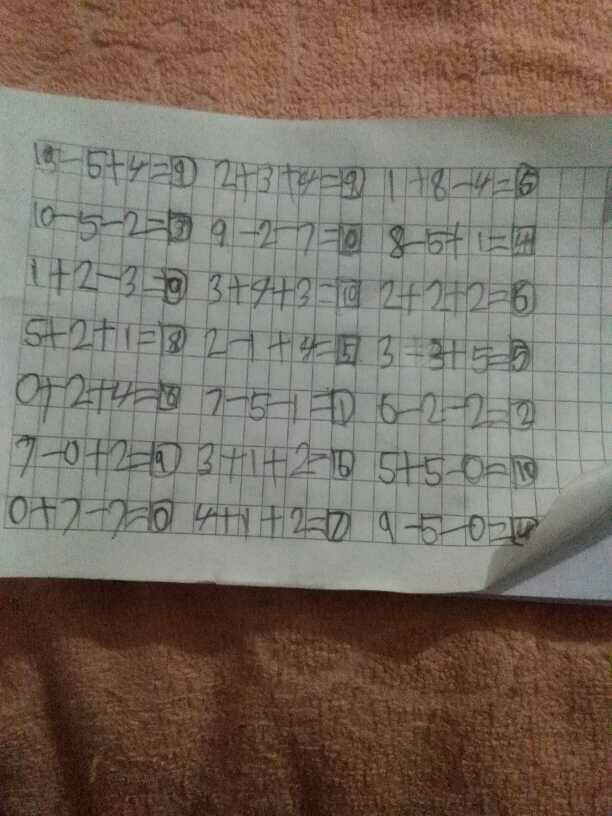 10-5+4=9 2+3+4=9 1+8-4=5
10-5-2=3 9-2-7=0 8-5+1=4
1+2-3=0 3+4+3=10 2+2+2=6
5+2+1=8 2-1+4=5 3-3+5=5
0+2+4=6 7-5-1=1 6-2-2=2
7-0+2=9 3+1+2=6 5+5-0=10
0+7-7=0 4+1+2=7 9-5-0=4